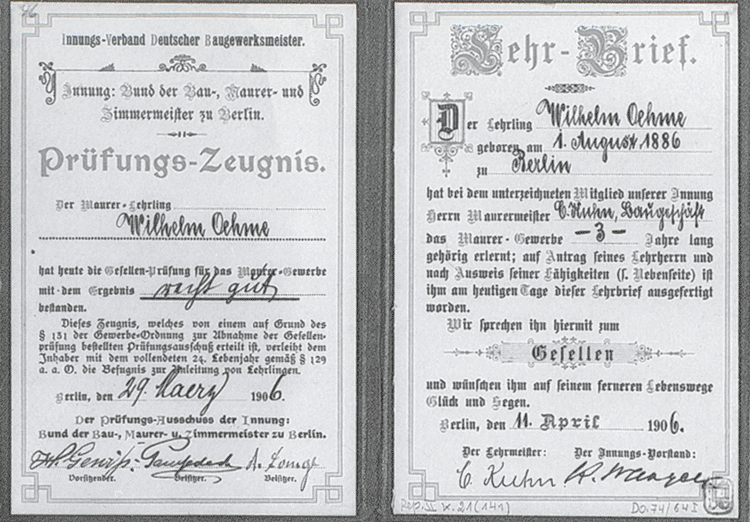 Innungs-Verband Deutscher Baugewerksmeister.
Innung: Bund der Bau-, Maurer- und
Zimmermeister zu Berlin.
Prüfungs-Zeugnis.
Der Maurer-Lehrling
Wilhelm Oehme
hat heute die Gesellen-Prüfung für das Maurer-Gewerbe
mit dem Ergebnis recht gut
bestanden.
Dieses Zeugnis, welches von einem auf Grund des
§ 131 der Gewerbe-Ordnung zur Abnahme der Gesellen-
prüfung bestellten Prüfungsausschuß erteilt ist, verleiht dem
Inhaber mit dem vollendeten 24. Lebenjahr gemäß § 129
a. a. O. die Befugnis zur Anleitung von Lehrlingen.
Berlin, den 29. Maerz 1906.
Der Prüfungs-Ausschuss der Innung:
Bund der Bau-, Maurer- u. Zimmermeister zu Berlin.
Vorsitzender. Beisitzer. Beisitzer.
Lehr-Brief.
Der Lehrling Wilhelm Oehme
geboren am 1. August 1886
zu Berlin
hat bei dem unterzeichneten Mitglied unserer Innung
Herrn Maurermeister C. Kuhn, Baugeschäft
das Maurer-Gewerbe -3- Jahre lang
gehörig erlernt; auf Antrag seines Lehrherrn und
nach Ausweis seiner Fähigkeiten (s. Nebenseite) ist
ihm am heutigen Tage dieser Lehrbrief ausgefertigt
worden.
Wir sprechen ihn hiermit zum
Gesellen
und wünschen ihm auf seinem ferneren Lebenswege
Glück und Segen.
Berlin, den 11. April 1906.
Der Lehrmeister: Der Innungs-Vorstand:
C. Kuhn
Do.74/64I